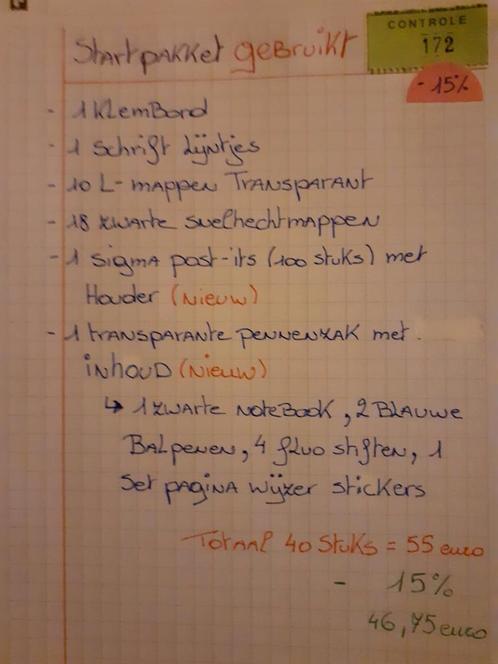 CONTROLE
172
Startpakket gebruikt
- 15%
- 1 klembord
- 1 schrift lijntjes
- 10 L-mappen Transparant
- 18 zwarte snelhechtmappen
- 1 sigma post-its (100 stuks) met
Houder (nieuw)
- 1 transparante pennenzak met
inhoud (nieuw)
↳ 1 zwarte notebook, 2 Blauwe
Balpenen, 4 fluo stiften, 1
Set pagina wijzer stickers
Totaal 40 Stuks = 55 euro
- 15%
46,75 euro